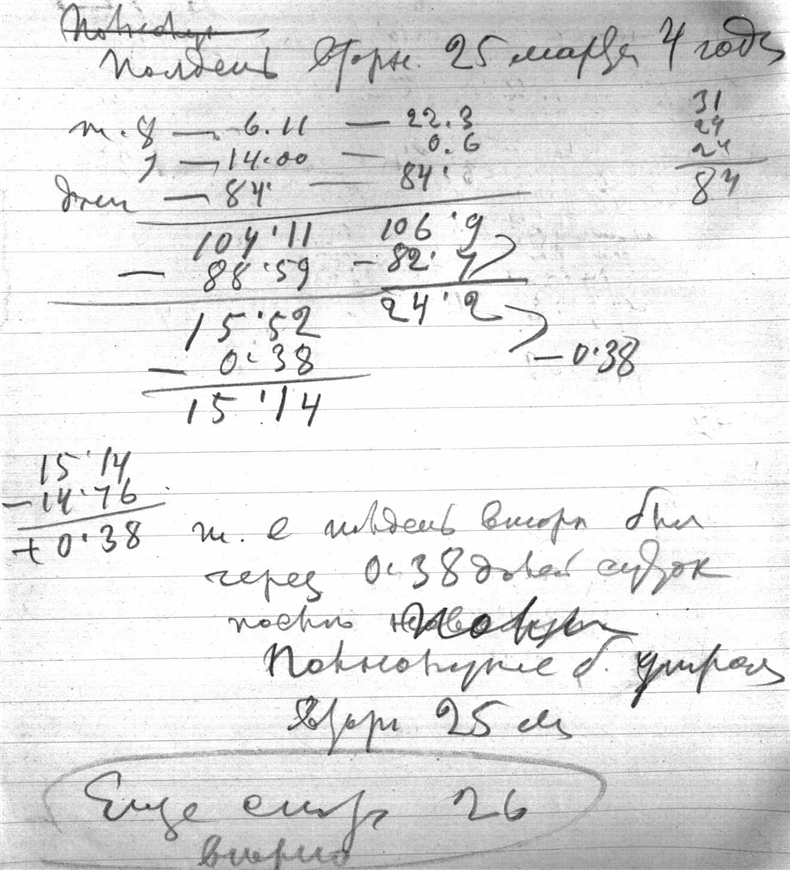 Полнолун
Полдень вторн. 25 марта 4 года
т. 8 — 6.11 — 22.3
31
24
7 — 14.00 — 0.6
24
дни — 84. — 84.
84
104.11 106.9
— 88.59 — 82.7
15.52 24.2
— 0.38 — 0.38
15.14
15.14
— 14.76
+ 0.38 т. е полдень вторн был
через 0.38 долей суток
после
Полнолуние б. утром
вторн 25 м
Еще 26